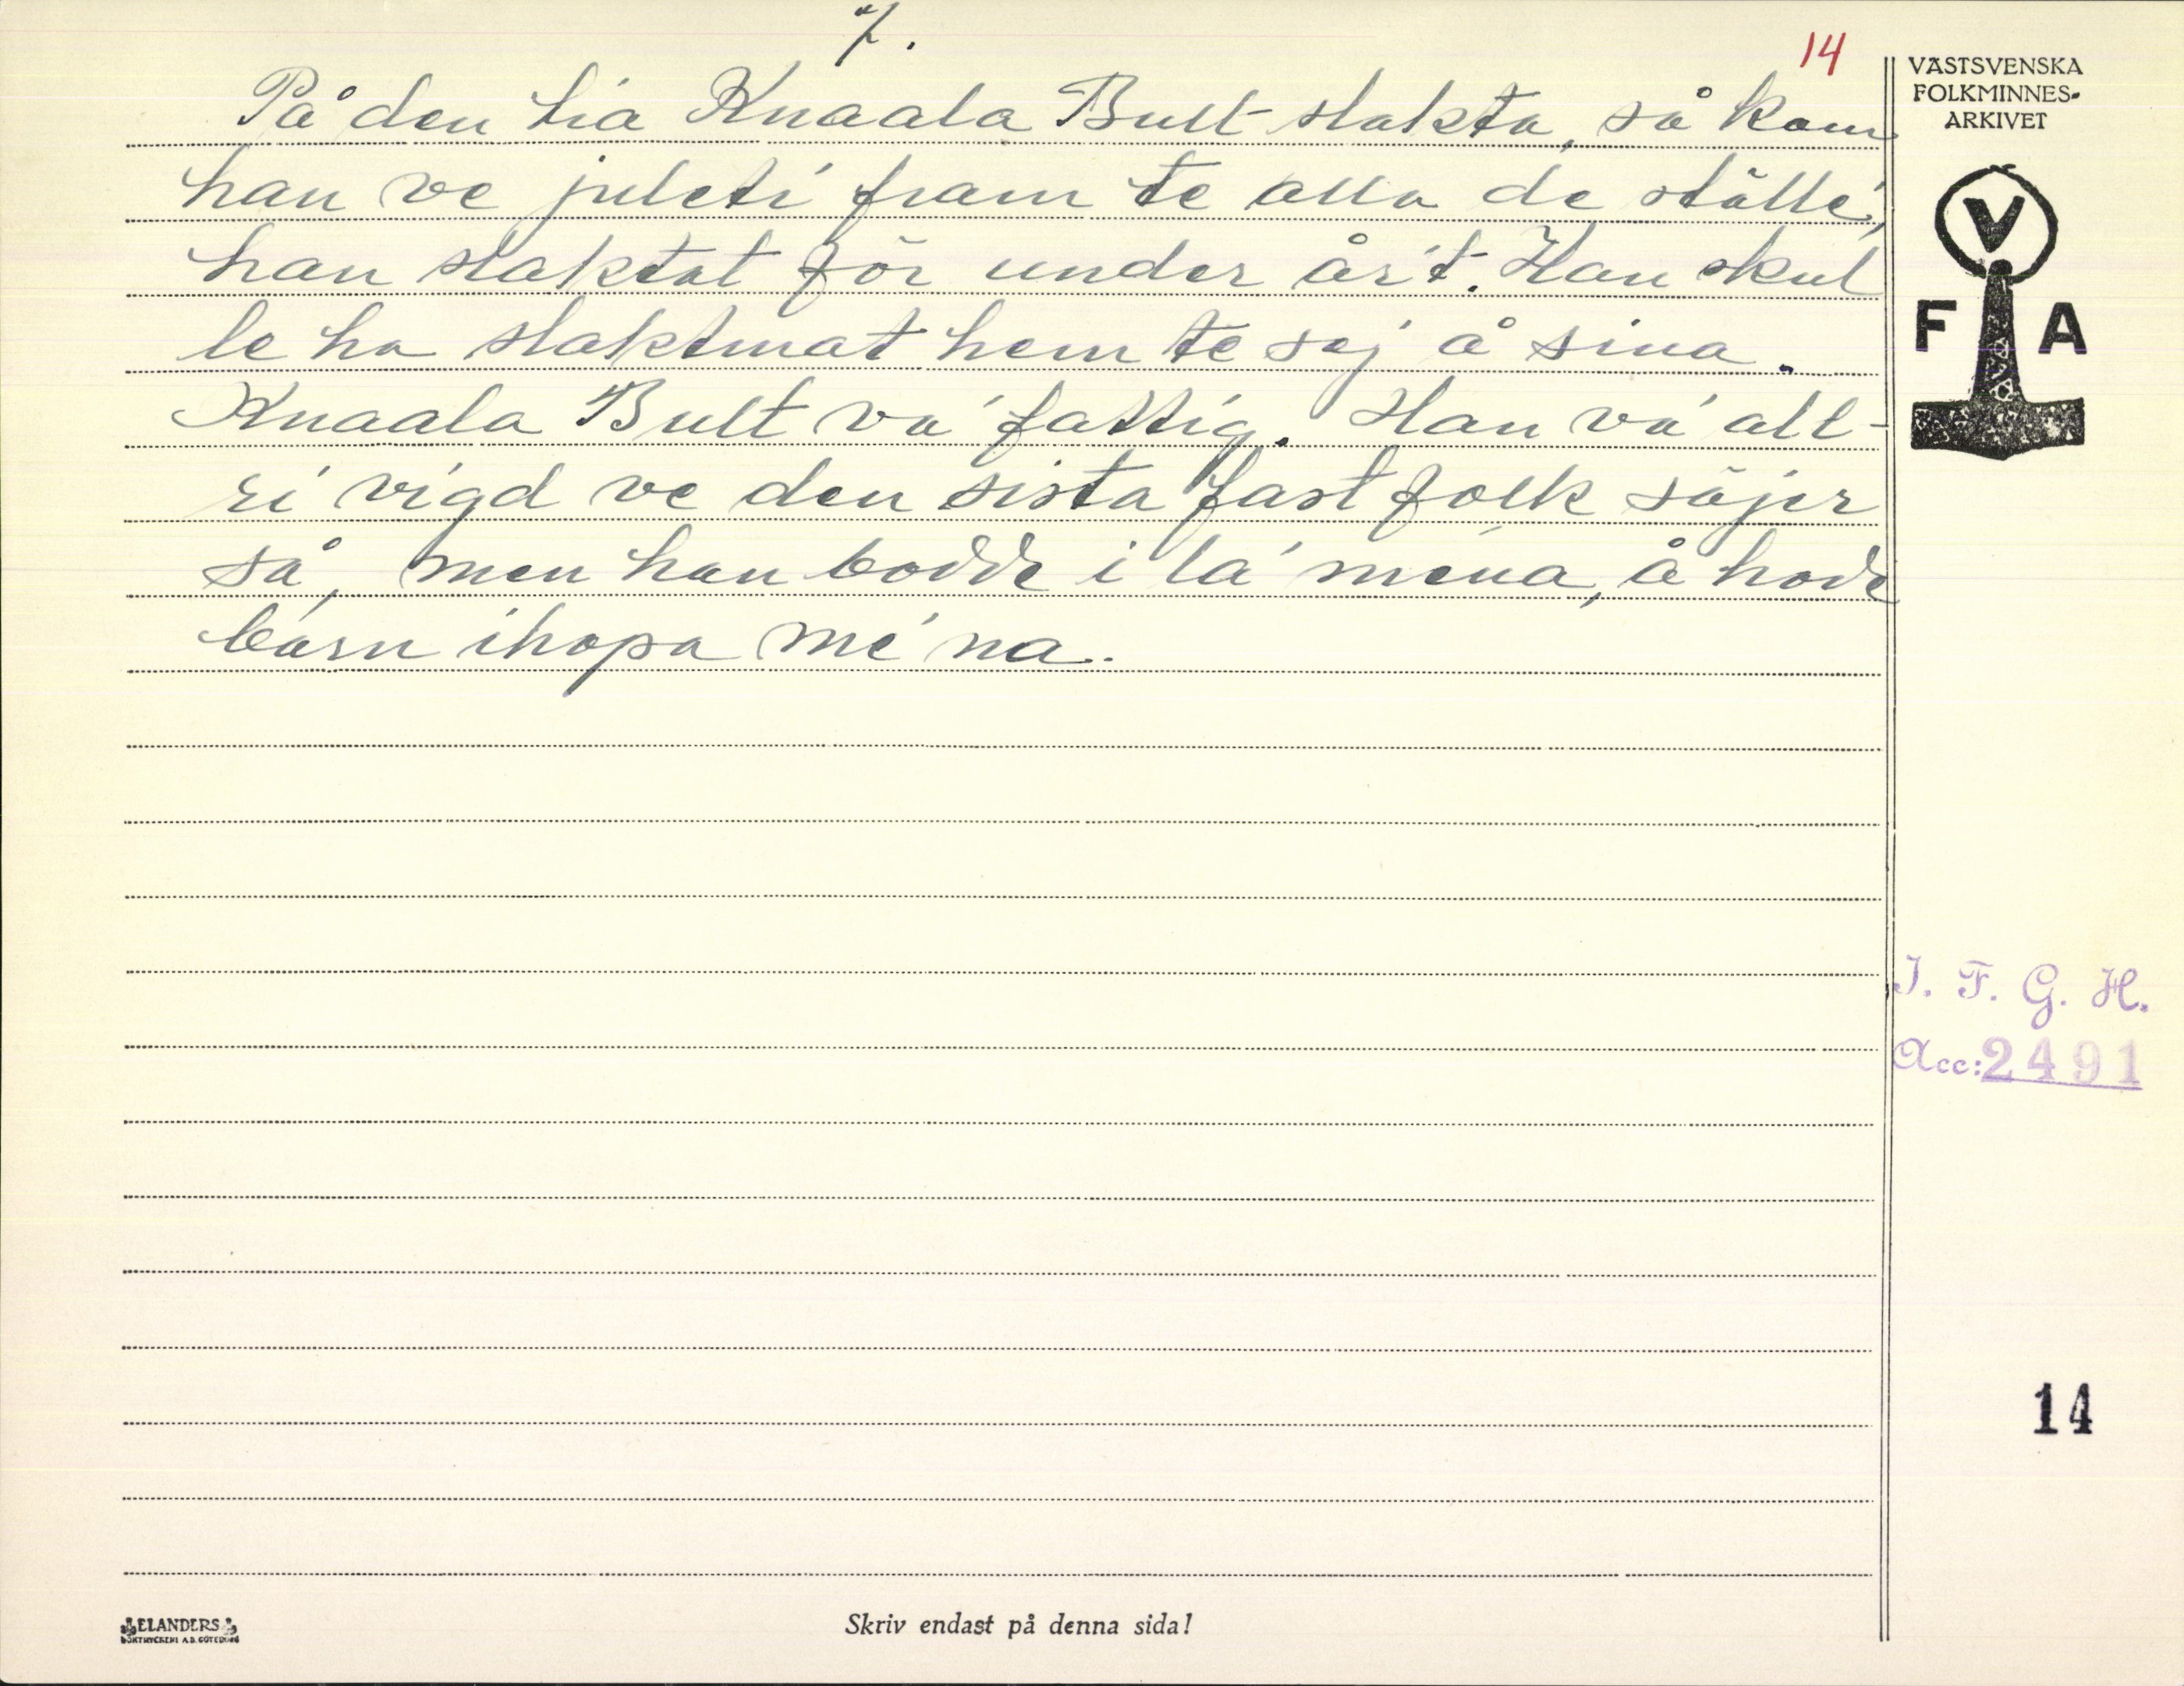 7.
14
På den tia Knaala Bult slakta, så kom
han ve juleti fram te alla de ställe,
han slaktat för under år't. Han skul
le ha slaktmat hem te sej å sina.
Knaala Bult va' fattig. Han va' all-
ri vigd ve den sista fast folk säjer
så, men han bodde i la' mena, å hade
barn ihopa me' na.
VÄSTSVENSKA
FOLKMINNES-
ARKIVET
V
F A
I. F. G. H.
Acc: 2491
14
ELANDERS
BOKTRYCKERI A.B. GÖTEBORG
Skriv endast på denna sida!